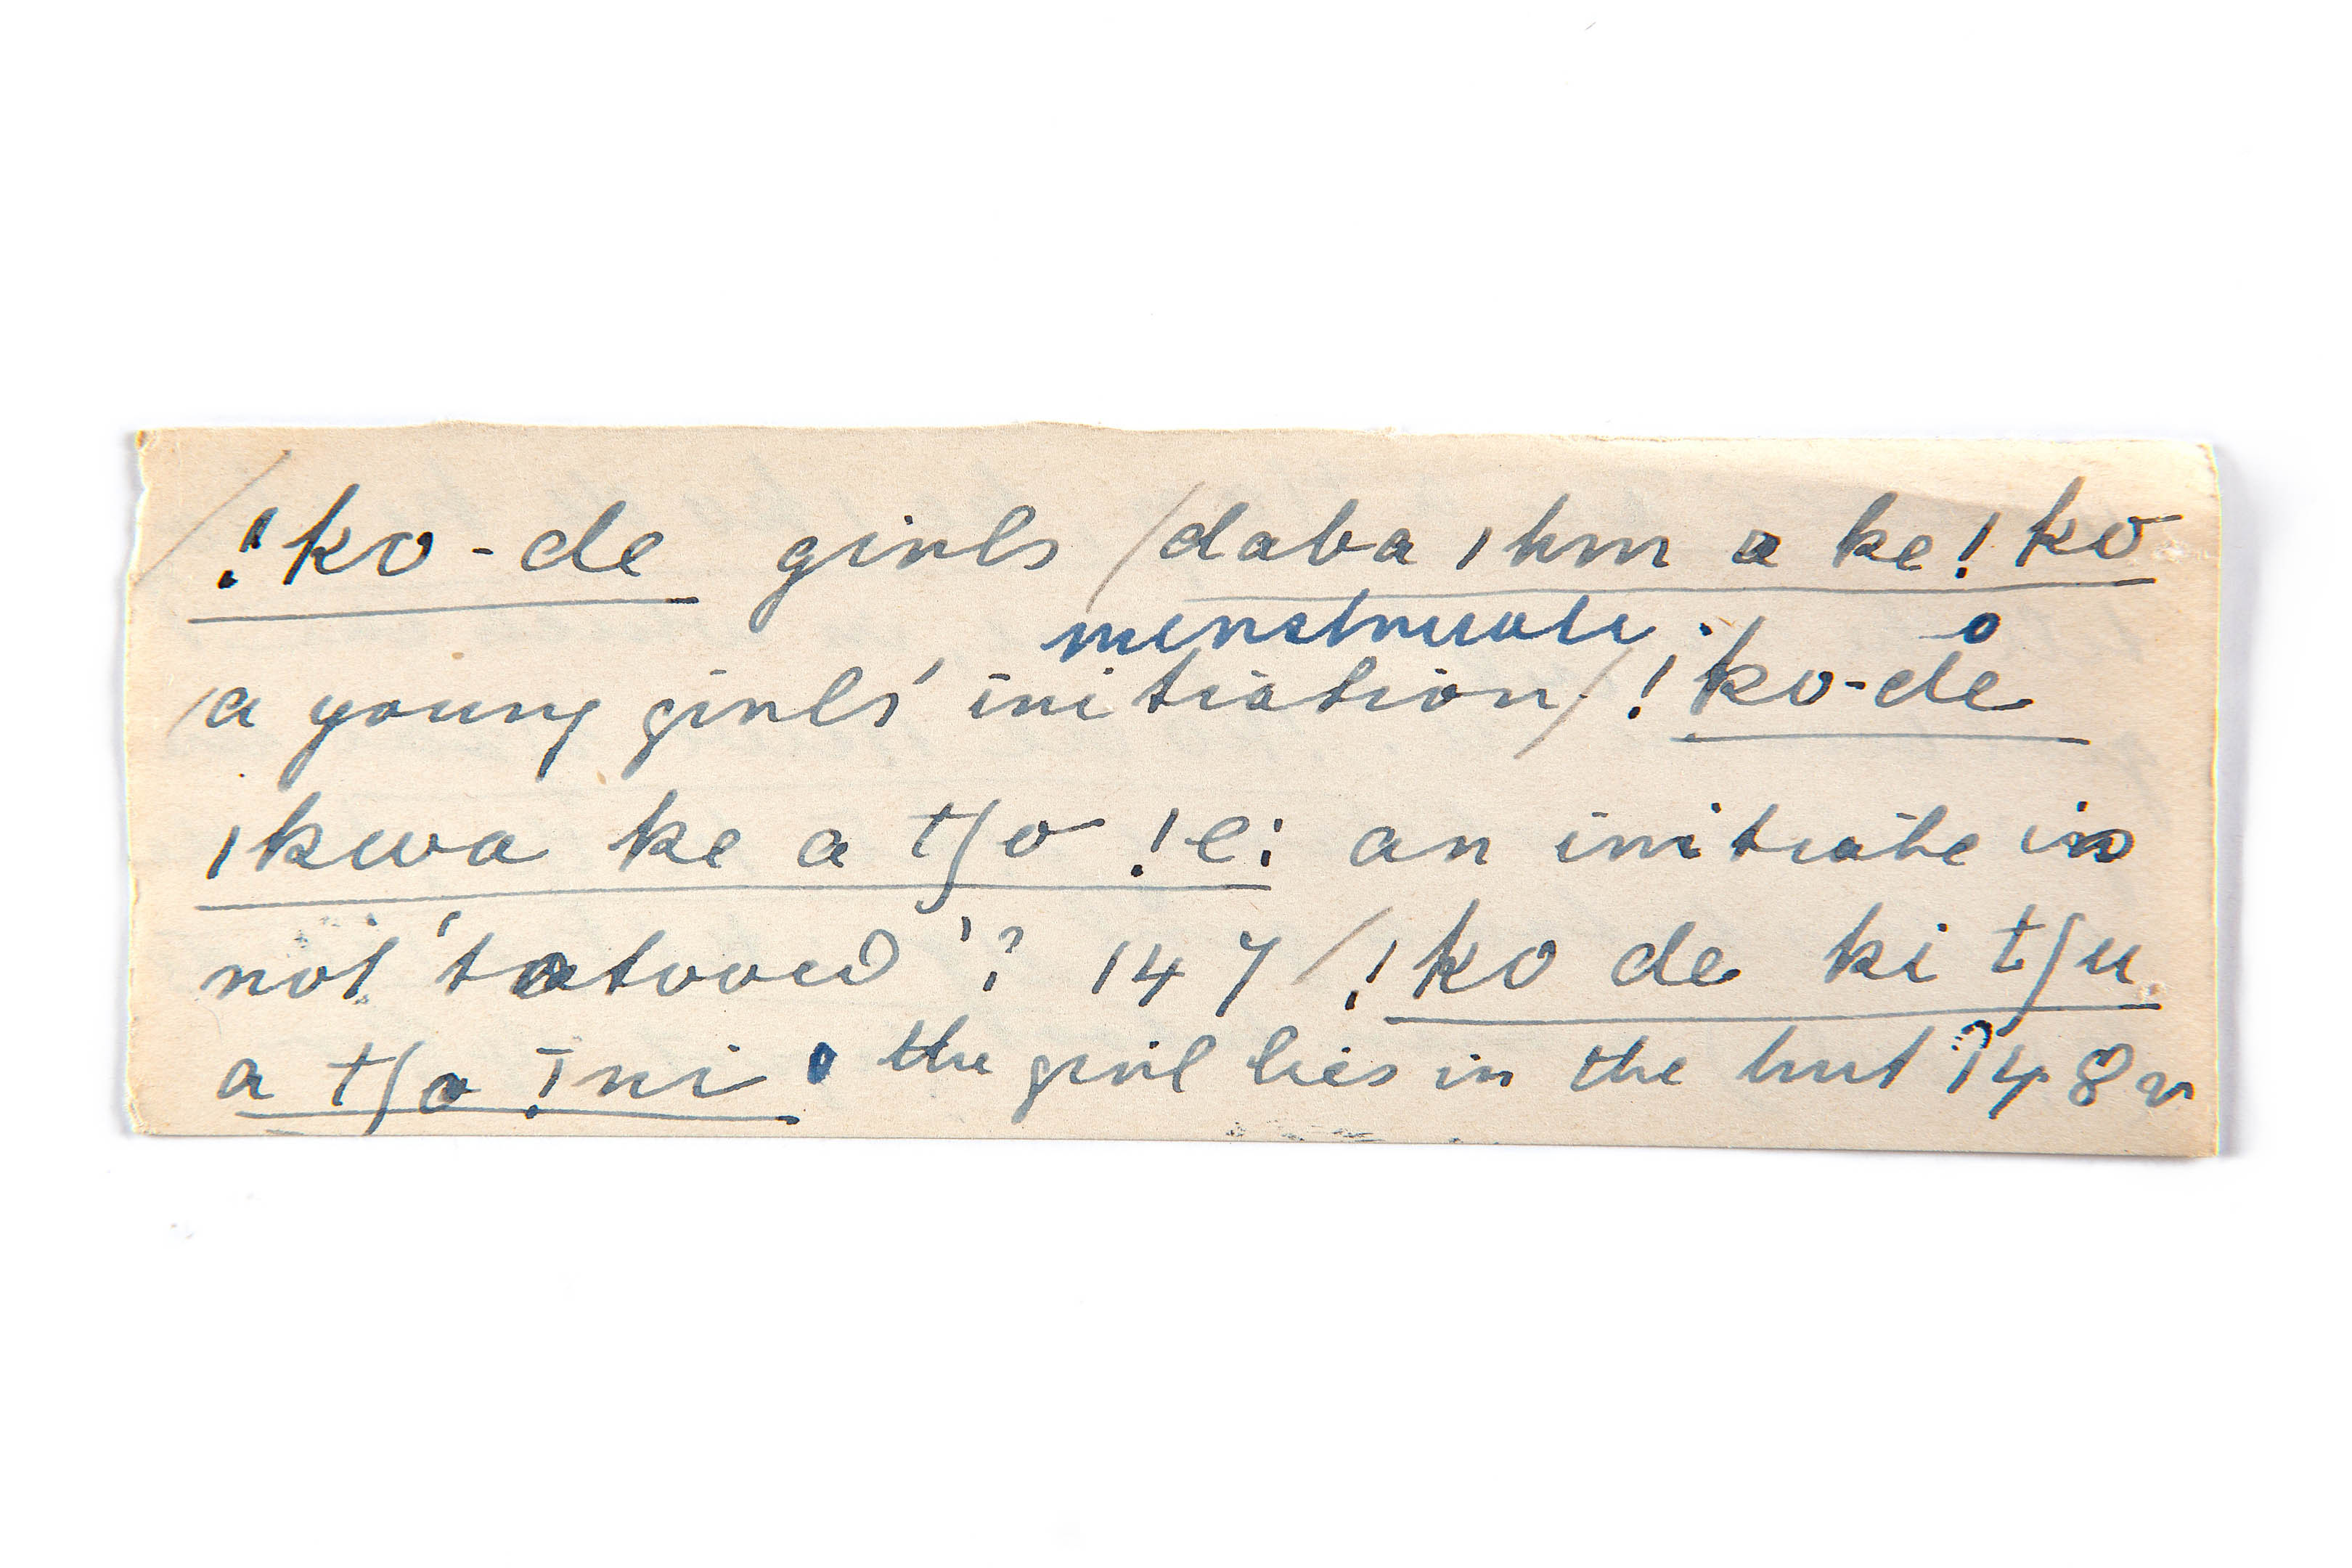 /!ko-de girls /daba ıhm a ke!ko
menstruate.
/a young girls' initiation/!ko-de
ıkwa ke a tʃo !e: an initiate is
not 'tatooed'? 147/!ko de ki tʃu
a tʃo !ni the girl lies in the hut ?148v